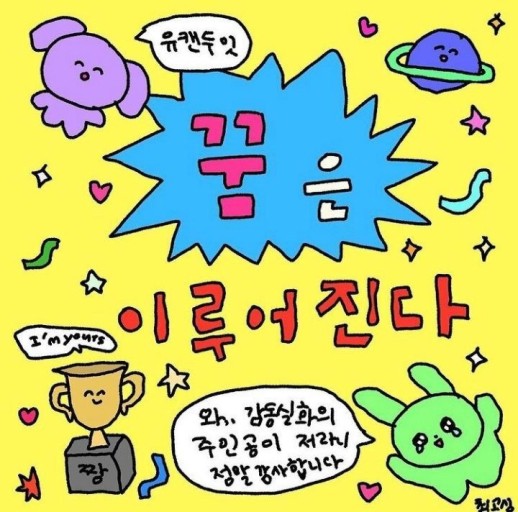 유캔두잇
꿈은
이루어진다
I'm yours
짱
와, 감동실화의
주인공이 저라니
정말 감사합니다
최고심